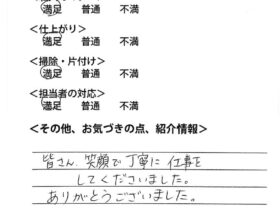 満足 普通 不満
<仕上がり>
満足 普通 不満
<掃除・片付け>
満足 普通 不満
<担当者の対応>
満足 普通 不満
<その他、お気づきの点、紹介情報>
皆さん 笑顔で丁寧に 仕事を
してくださいました。
ありがとうございました。